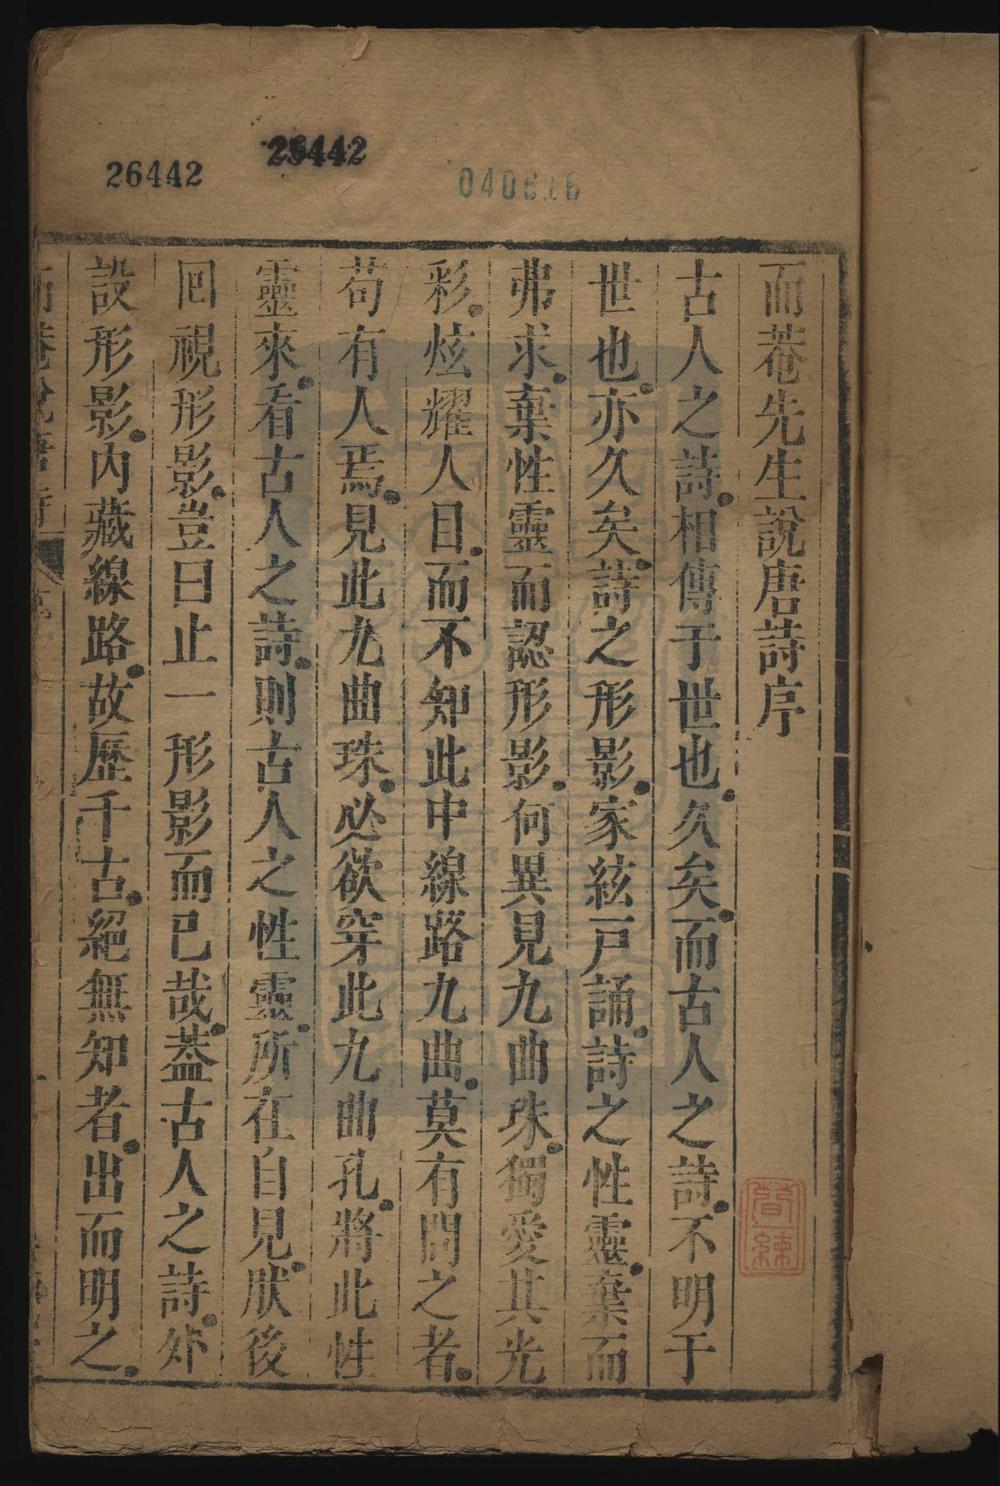 26442
26442
而菴先生說唐詩序
古人之詩相傳于世也久矣而古人之詩不明于
世也亦久矣詩之形影家絃戸誦詩之性靈棄而
弗求棄性靈而認形影何異見九曲珠獨愛其光
彩炫耀人目而不知此中線路九曲莫有問之者
苟有人焉見此九曲珠必欲穿此九曲孔將此性
靈來看古人之詩則古人之性靈所在自見肰後
回視形影豈曰止一形影而已哉葢古人之詩外
設形影內藏線路故歷千古絕無知者出而明之